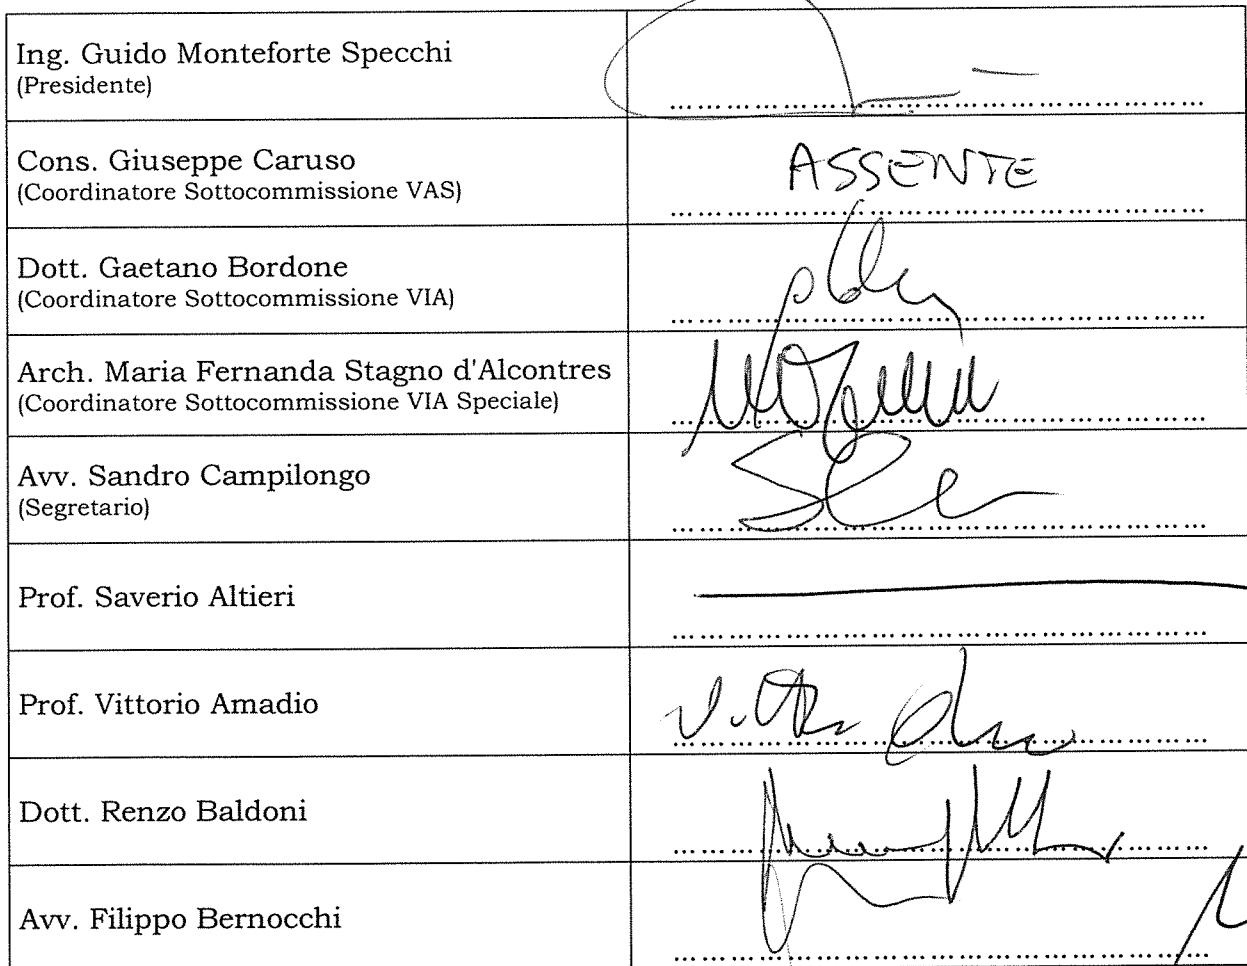 Ing. Guido Monteforte Specchi
(Presidente)
Cons. Giuseppe Caruso
(Coordinatore Sottocommissione VAS)
ASSENTE
Dott. Gaetano Bordone
(Coordinatore Sottocommissione VIA)
Arch. Maria Fernanda Stagno d'Alcontres
(Coordinatore Sottocommissione VIA Speciale)
Avv. Sandro Campilongo
(Segretario)
Prof. Saverio Altieri
Prof. Vittorio Amadio
Dott. Renzo Baldoni
Avv. Filippo Bernocchi